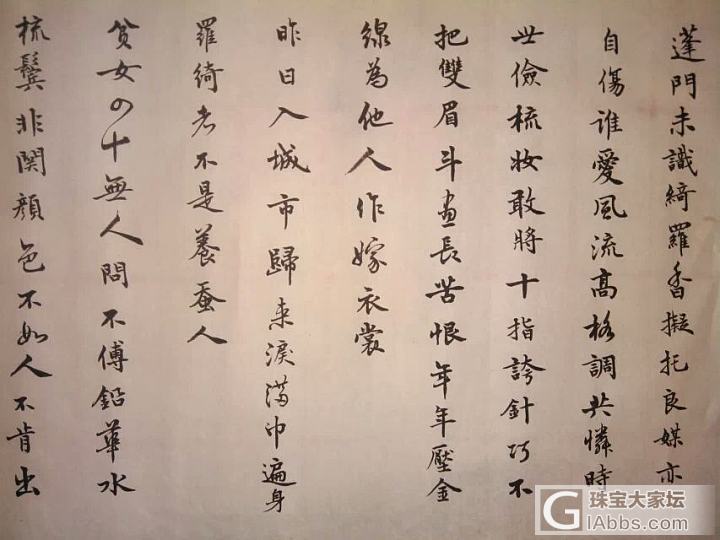 蓬門未識綺羅香擬托良媒亦
自傷誰愛風流高格調共憐時
世儉梳妝敢將十指誇針巧不
把雙眉斗畫長苦恨年年壓金
線為他人作嫁衣裳
昨日入城市歸來淚滿巾遍身
羅綺者不是養蚕人
貧女四十無人問不傅鉛華水
梳鬢非関顏色不如人不肯出
珠宝大家坛
iAbbs.com